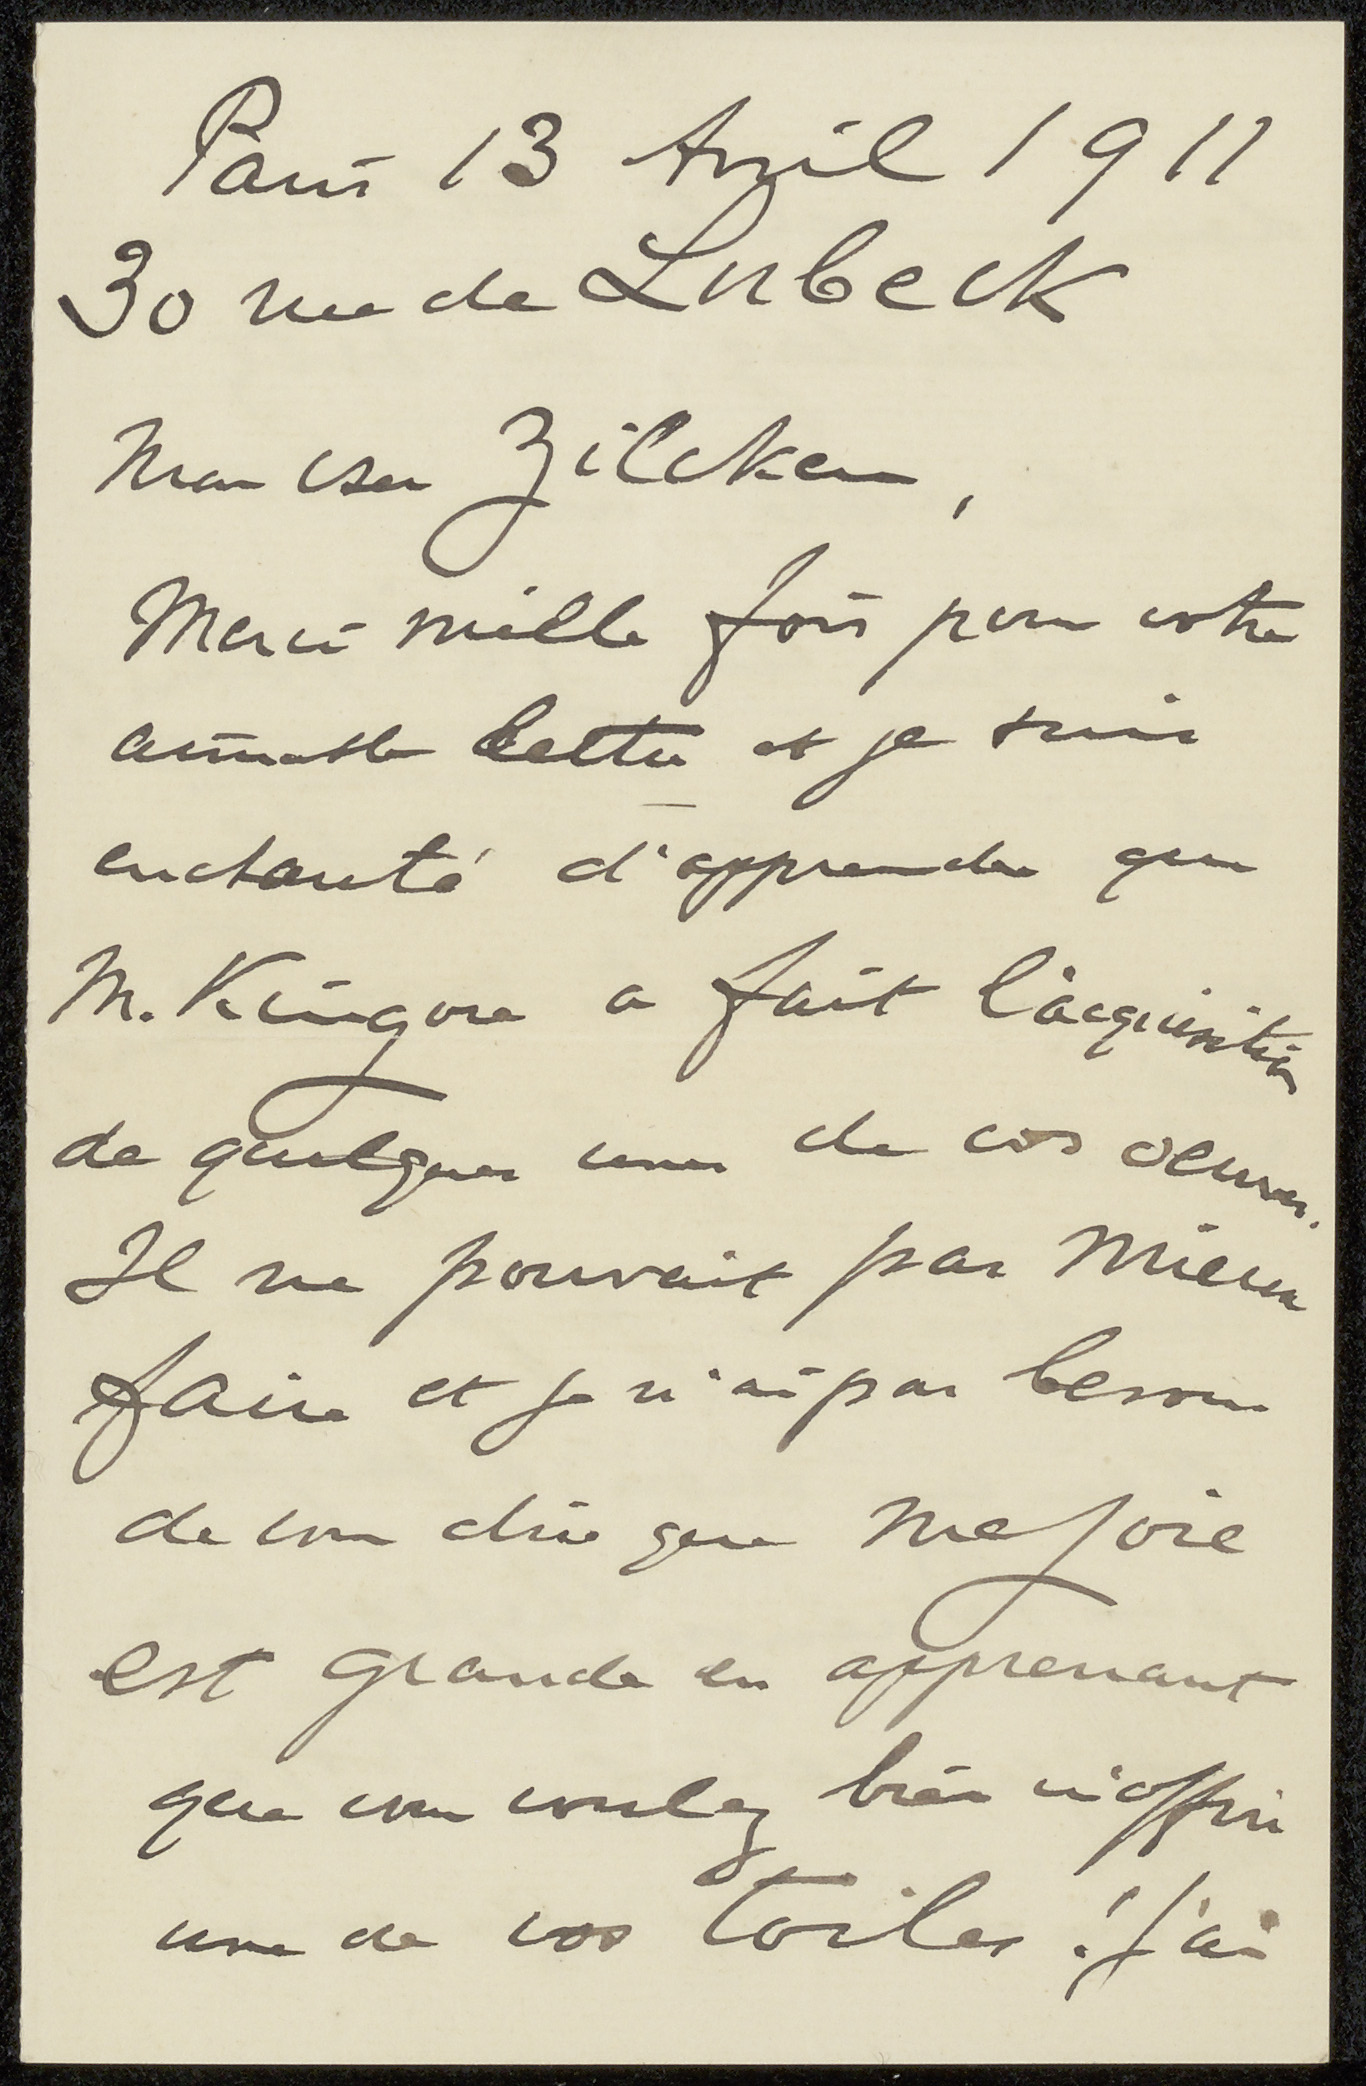 Paris 13 Avril 1911
30 rue de Lubeck
Mon cher Zilcken,
Merci mille fois pour votre
aimable lettre et je suis
enchanté d'apprendre que
M. Kingore a fait l'acquisition
de quelques unes de vos oeuvres.
Il ne pouvait pas mieux
faire et je n'ai pas besoin
de vous dire que ma joie
est grande en apprenant
que vous voulez bien m'offrir
une de vos toiles ! J'ai